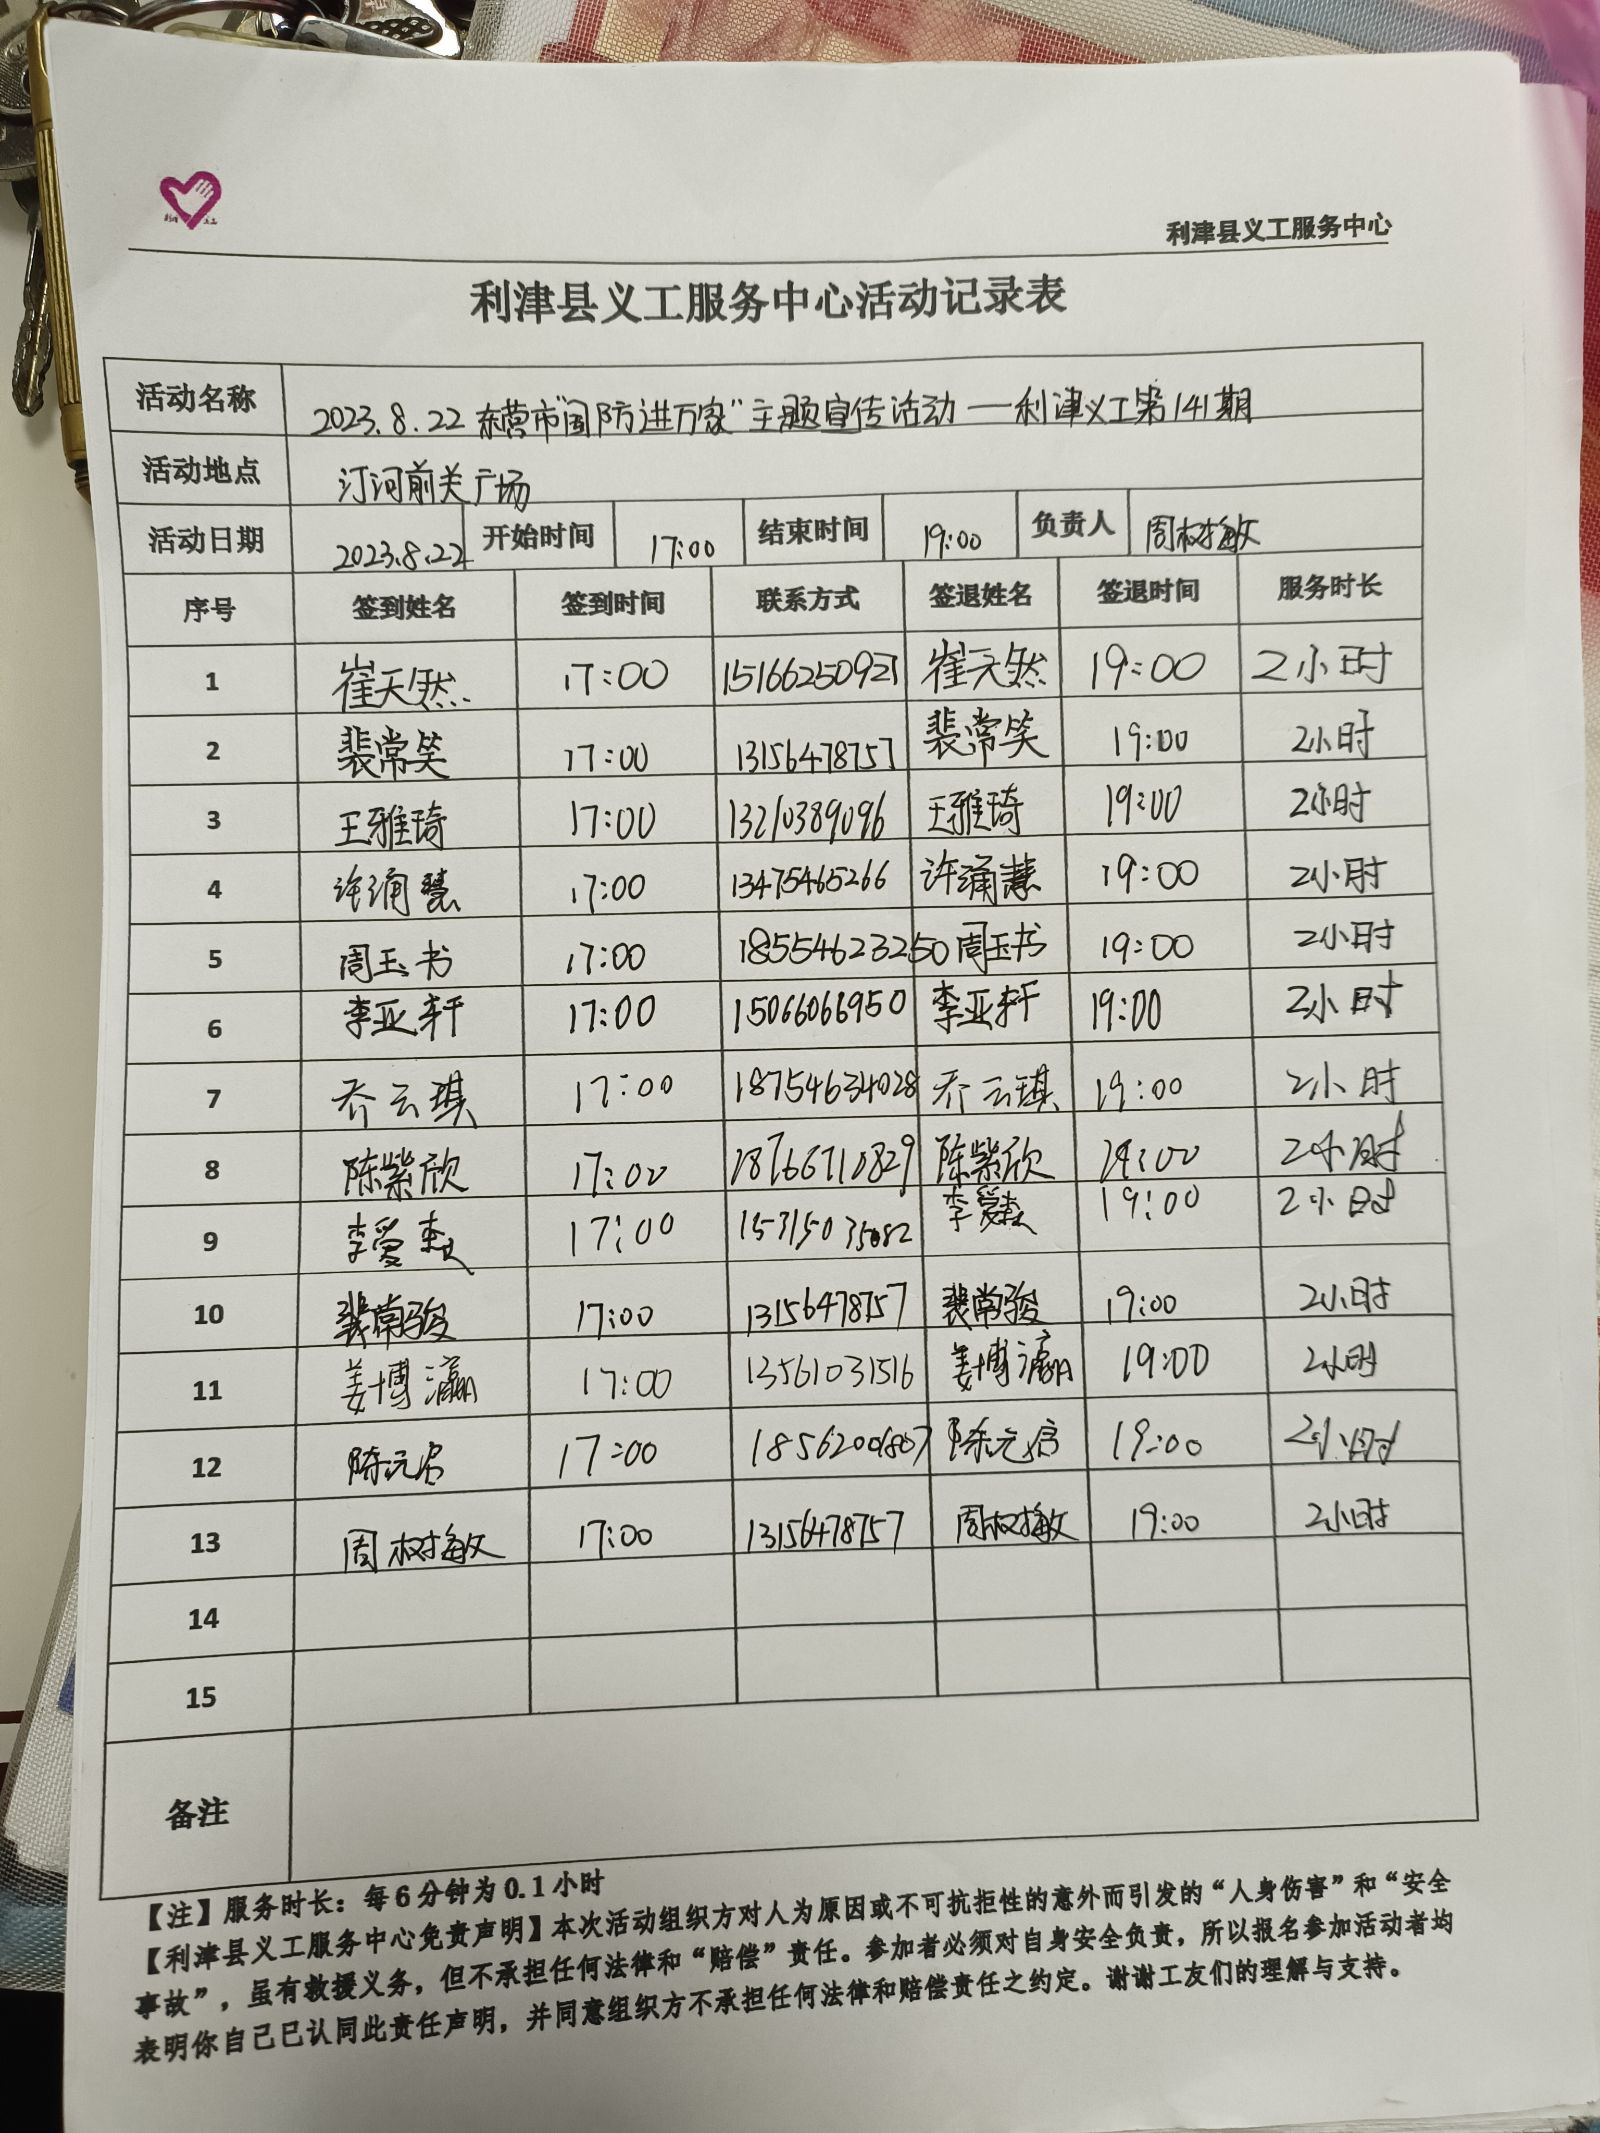 利津县义工服务中心
利津县义工服务中心活动记录表
活动名称 2023.8.22 东营市"国防进万家"主题宣传活动——利津义工第141期
活动地点 汀河前关广场
活动日期 2023.8.22 开始时间 17:00 结束时间 19:00 负责人 周树敏
序号 签到姓名 签到时间 联系方式 签退姓名 签退时间 服务时长
1 崔天然 17:00 15166250921 崔天然 19:00 2小时
2 裴常笑 17:00 13156478757 裴常笑 19:00 2小时
3 王雅琦 17:00 13210389096 王雅琦 19:00 2小时
4 许涌慧 17:00 13475465266 许涌慧 19:00 2小时
5 周玉书 17:00 18554623250 周玉书 19:00 2小时
6 李亚轩 17:00 15066066950 李亚轩 19:00 2小时
7 乔云琪 17:00 18754634028 乔云琪 19:00 2小时
8 陈紫欣 17:00 18766710829 陈紫欣 19:00 2小时
9 17:00 19:00 2小时
10 裴常骏 17:00 13156478757 裴常骏 19:00 2小时
11 姜博瀛 17:00 13561031516 姜博瀛 19:00 2小时
12 17:00 19:00 2小时
13 周树敏 17:00 13156478757 周树敏 19:00 2小时
14
15
备注
【注】服务时长：每6分钟为0.1小时
【利津县义工服务中心免责声明】本次活动组织方对人为原因或不可抗拒性的意外而引发的“人身伤害”和“安全
事故”，虽有救援义务，但不承担任何法律和“赔偿”责任。参加者必须对自身安全负责，所以报名参加活动者均
表明你自己已认同此责任声明，并同意组织方不承担任何法律和赔偿责任之约定。谢谢工友们的理解与支持。